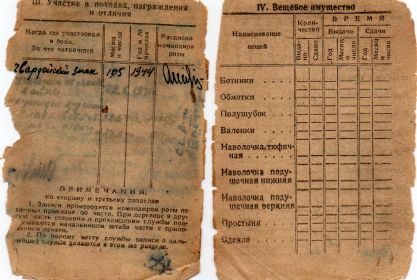 III. Участие в походах, награждения
и отличия
Когда где участвовал
в боях.
За что награжден
Месяц
и число
Год и №
приказа
Расписка
командира
роты
Гвардейский знак 105 1944
ПРИМЕЧАНИЯ:
ко второму и третьему разделам
1. Записи производятся командиром роты по
приказов по части. При переводе в дру
часть сведения о прохождении службы под
писываются начальником штаба части с при
ложением печати.
2. По новому месту службы записи о даль
нейшей службе делаются в этом же разделе.
IV. Вещевое имущество
Наименование
вещей
Коли-
чество
ВРЕМЯ
Выдачи
Сдачи
Выда-
но
Сдано
Год
Месяц
и число
Год
Месяц
и число
Ботинки
Обмотки
Полушубок
Валенки
Наволочка тюфяч-
ная
Наволочка поду-
шечная нижняя
Наволочка поду-
шечная верхняя
Простыня
Одеяло